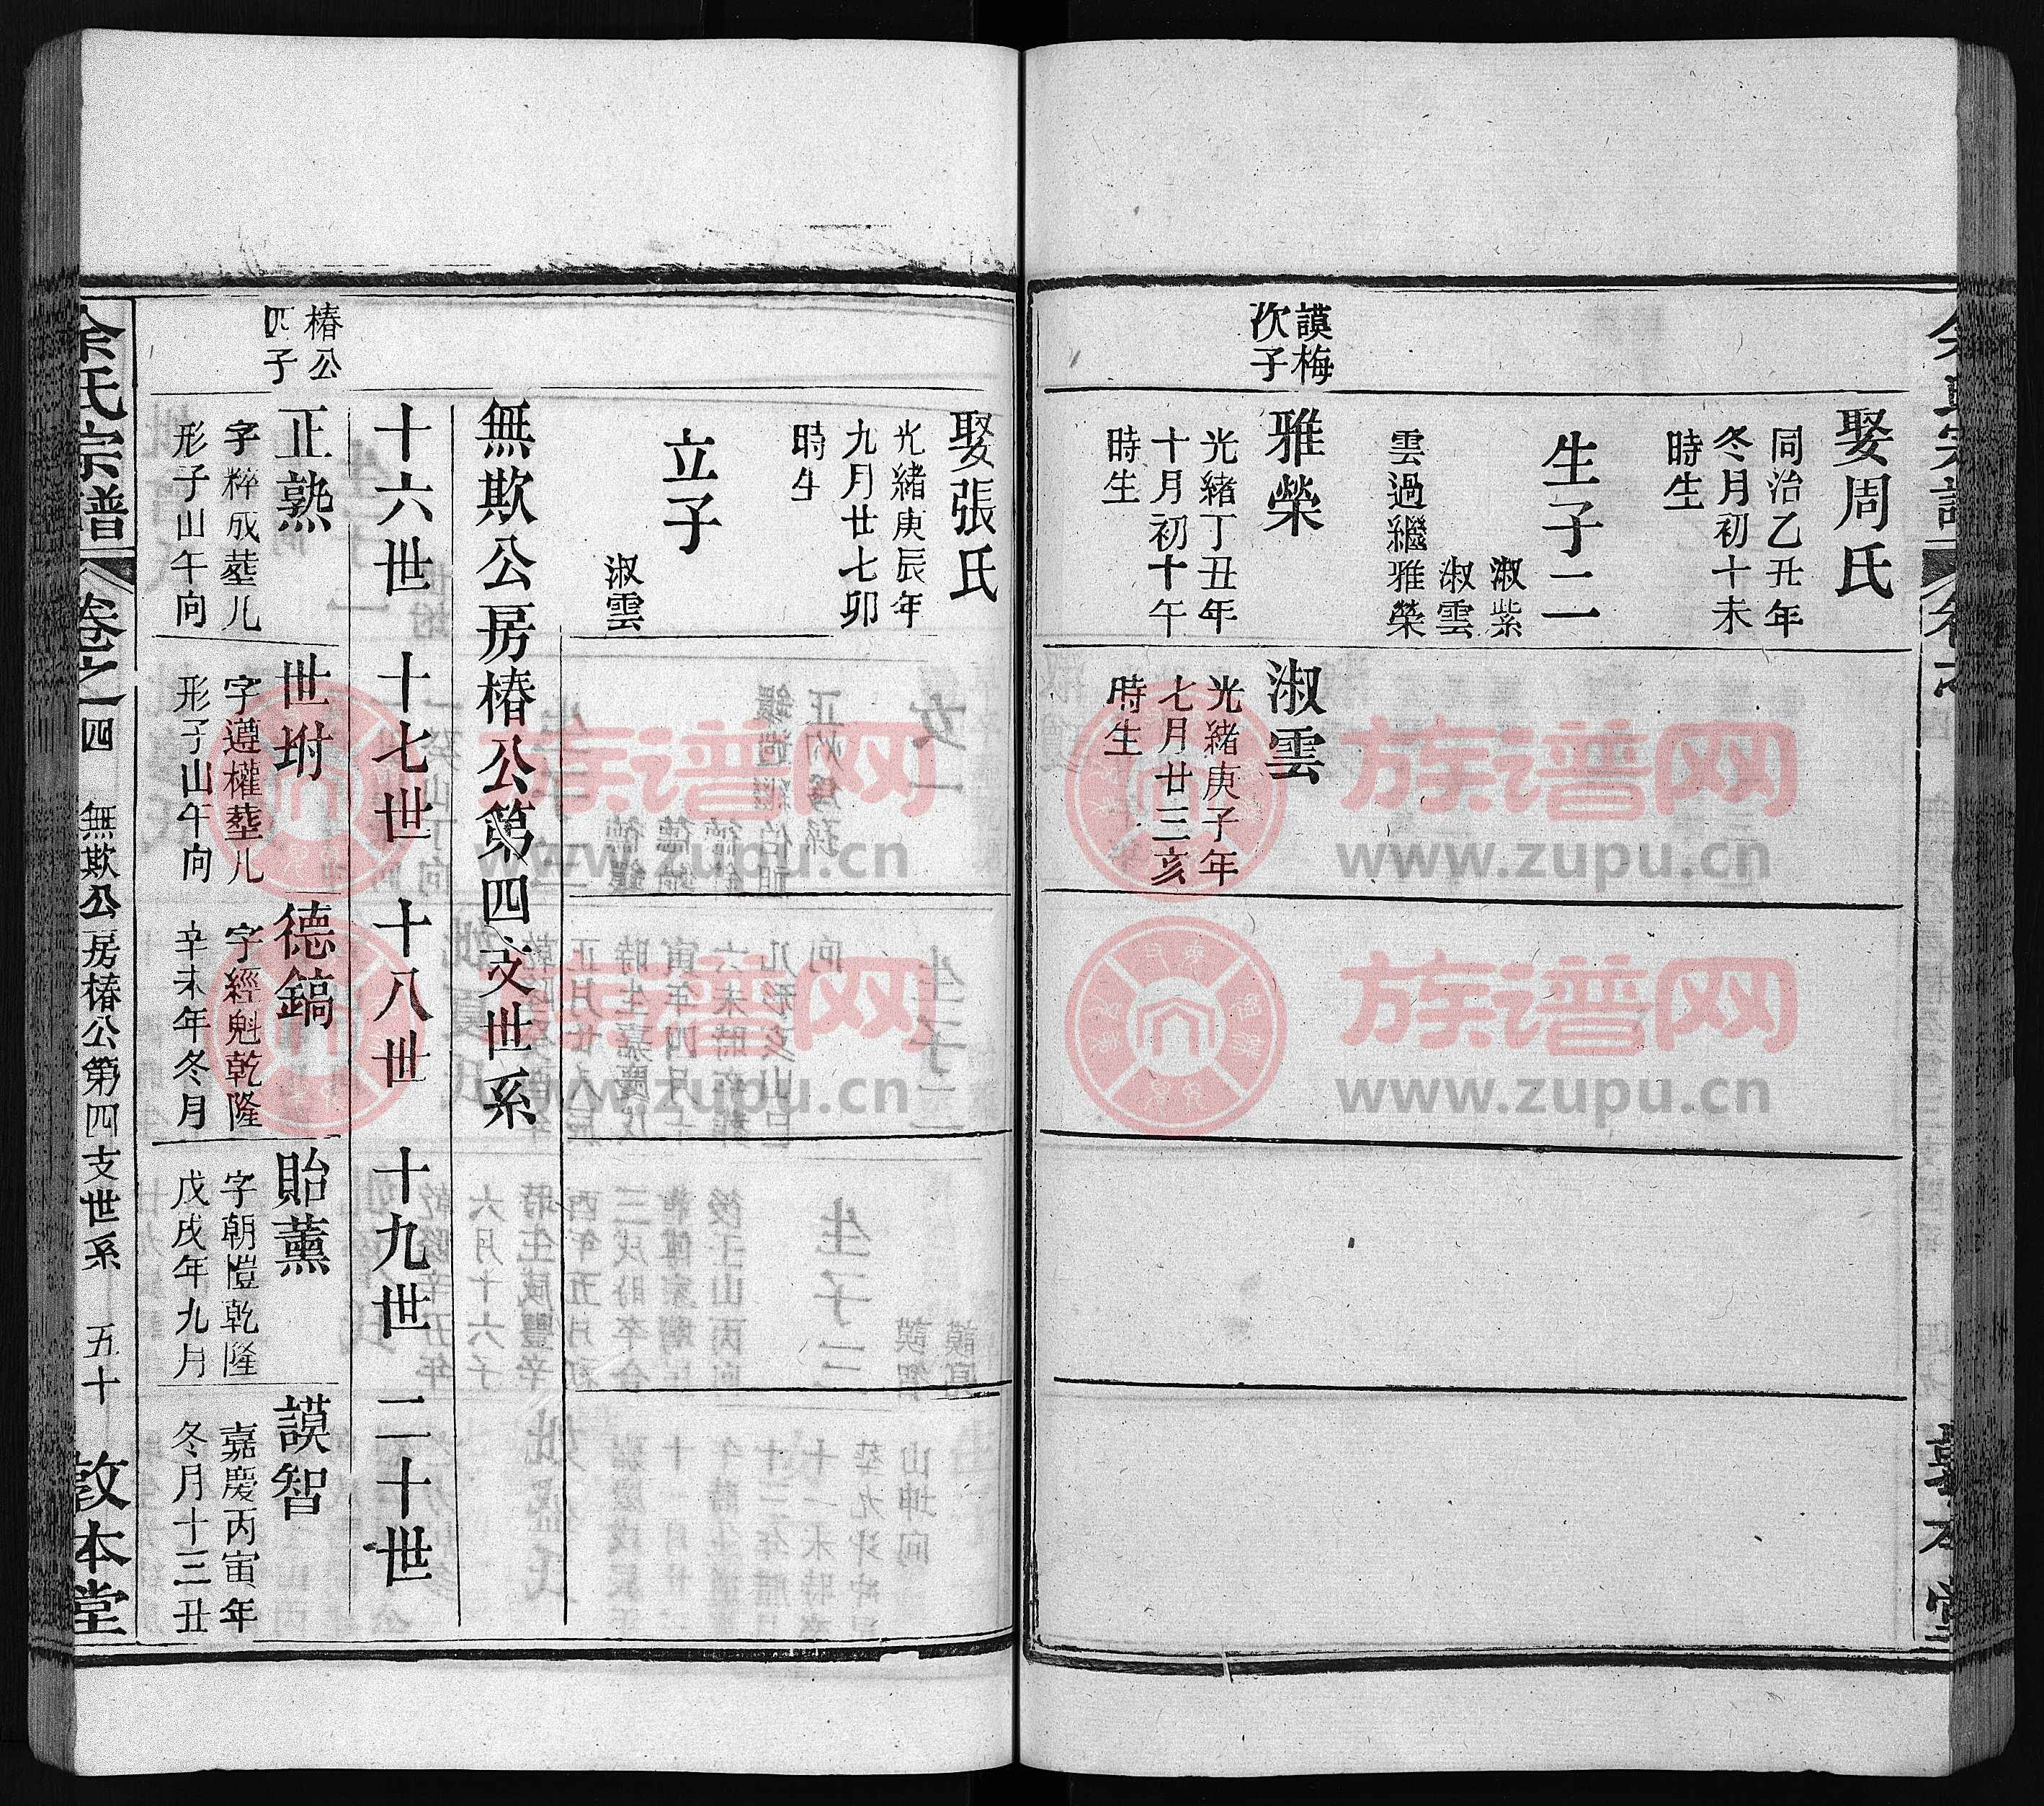 娶周氏
同治乙丑年
冬月初十未
時生
生子二
淑紫
淑雲
雲過繼雅榮
謨梅
次子
雅榮
光緒丁丑年
十月初十午
時生
淑雲
光緒庚子年
七月廿三亥
時生
娶張氏
光緒庚辰年
九月廿七卯
時生
立子
淑雲
無欺公房椿公第四支世系
十六世 十七世 十八世 十九世 二十世
椿公
四子
正熟
字粹成塟儿
形子山午向
世坿
字遵權塟儿
形子山午向
德鎬
字經魁乾隆
辛未年冬月
貽薰
字朝愷乾隆
戊戌年九月
謨智
嘉慶丙寅年
冬月十三丑
余氏宗譜 卷之四 無欺公房椿公第四支世系 五十 敦本堂
族谱网
www.zupu.cn
族谱网
www.zupu.cn
族谱网
www.zupu.cn
族谱网
www.zupu.cn